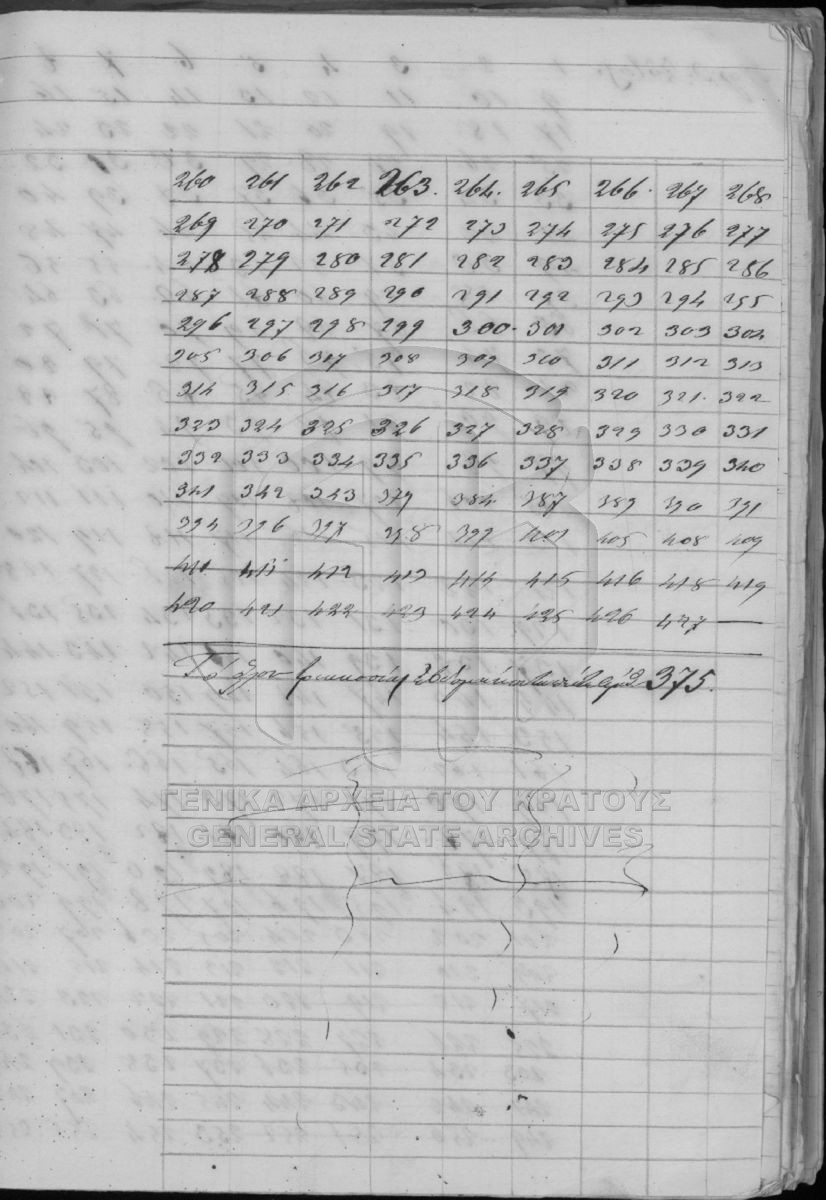 260 261 262 263. 264. 265 266. 267 268
269 270 271 272 273 274 275 276 277
278 279 280 281 282 283 284 285 286
287 288 289 290 291 292 293 294 295
296 297 298 299 300. 301 302 303 304
305 306 307 308 309 310 311 312 313
314 315 316 317 318 319 320 321. 322
323 324 325 326 327 328 329 330 331
332 333 334 335 336 337 338 339 340
341 342 343 379 384 387 389 390 391
394 396 397 398 399 401 405 408 409
411 412 413 414 415 416 418 419
420 421 422 423 424 425 426 427 —
Τό όλον τριακοσίαι 375.
ΓΕΝΙΚΑ ΑΡΧΕΙΑ ΤΟΥ ΚΡΑΤΟΥΣ
GENERAL STATE ARCHIVES